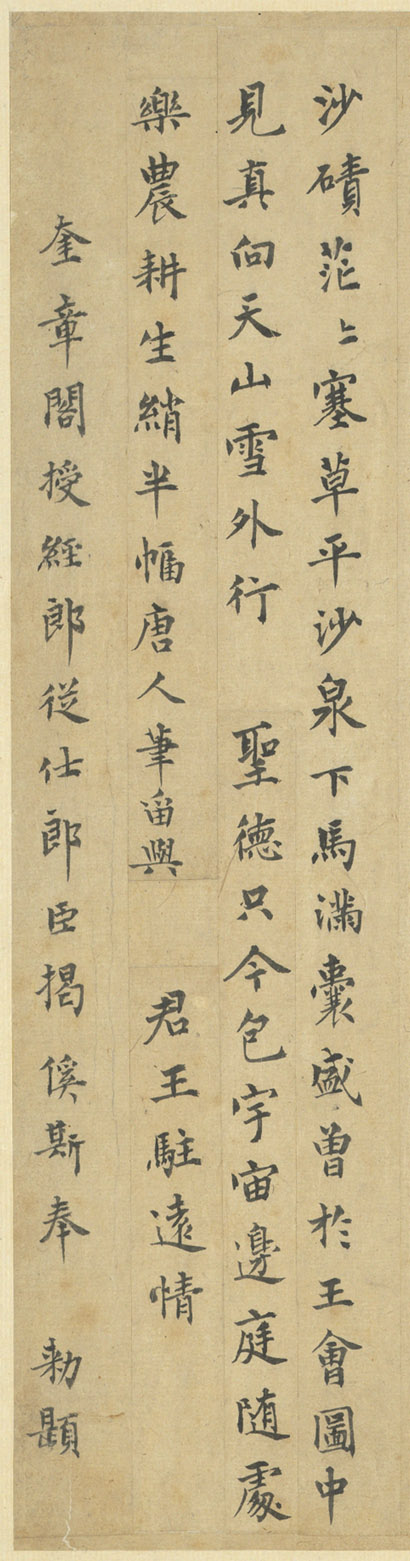 沙磧茫〻塞草平沙泉下馬滿囊盛曽於王會圖中
見真向天山雪外行　聖德只今包宇宙邊庭随處
樂農耕生綃半幅唐人筆畱與　君王駐遠情
奎章閣授經郎從仕郎臣揭傒斯奉　勅題